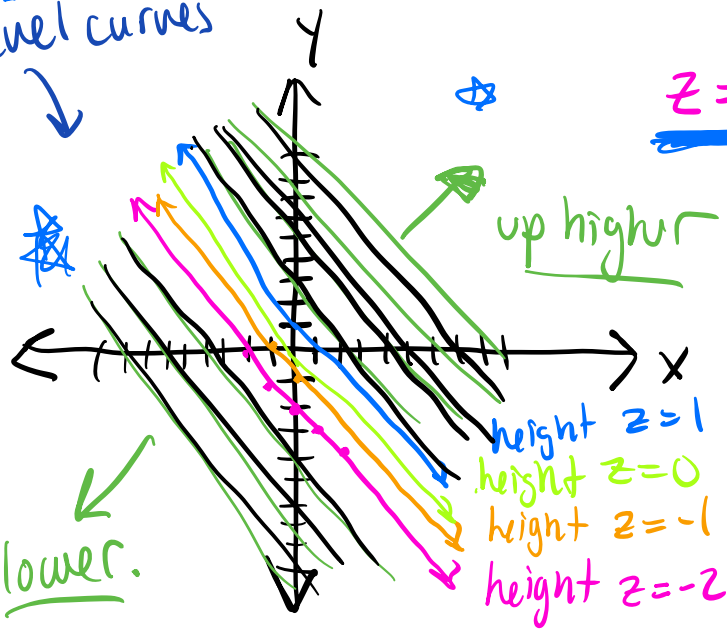 curves
Y
z=
up higher
x
height z=1
height z=0
height z=-1
height z=-2
lower.